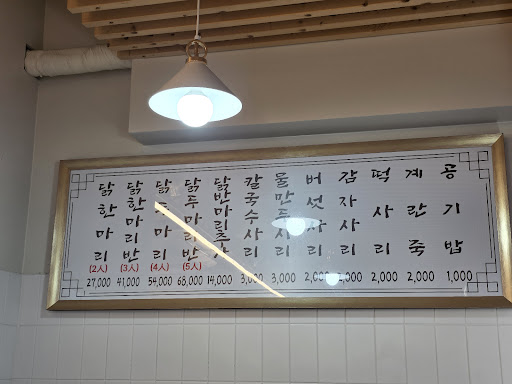 닭한마리 (2人) 27,000
닭한마리반 (3人) 41,000
닭두마리 (4人) 54,000
닭두마리반 (5人) 68,000
닭반마리추가 14,000
칼국수사리 3,000
물만두사리 3,000
버섯사리 2,000
감자사리 2,000
떡사리 2,000
계란죽 2,000
공기밥 1,000